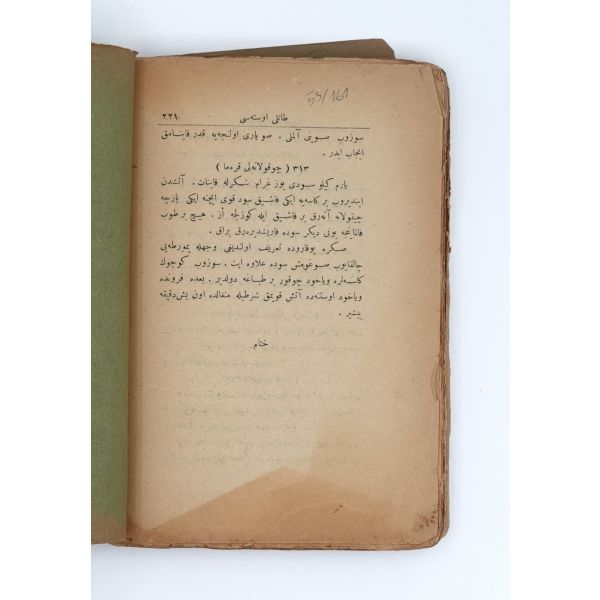 53/161
طاتلی اوسته‌سی ٢٢١
سوزوب صوینی آلملی . صو یاری اولنجه‌یه قدر قایناممق
ایجاب ایدر .
٣١٣ ( چوقولاته‌لی قره‌ما )
یارم کیلو سودی یوز غرام شکرله قاینات . آتشدن
ایندیروب بر کاسه‌یه ایکی قاشیق سود قوی ایچنه ایکی پارچه
چیقولاته آته‌رق بر قاشیق ایله کوزلجه أز . هیچ بر طوپ
قالماینجه بونی دیگر سوده قاریشدیره‌رق براق .
صکره یوقاروده تعریف اولندیغی وجهله یمورطه‌یی
چالقایوب صوغومش سوده علاوه ایت . سوزوب کوچوك
کاسه‌لره ویاخود چوقور بر طباغه دولدیر . بعده فرونده
ویاخود اوستنده آتش قویمق شرطیله منغالده اون بش دقیقه
پیشیر .
ختام